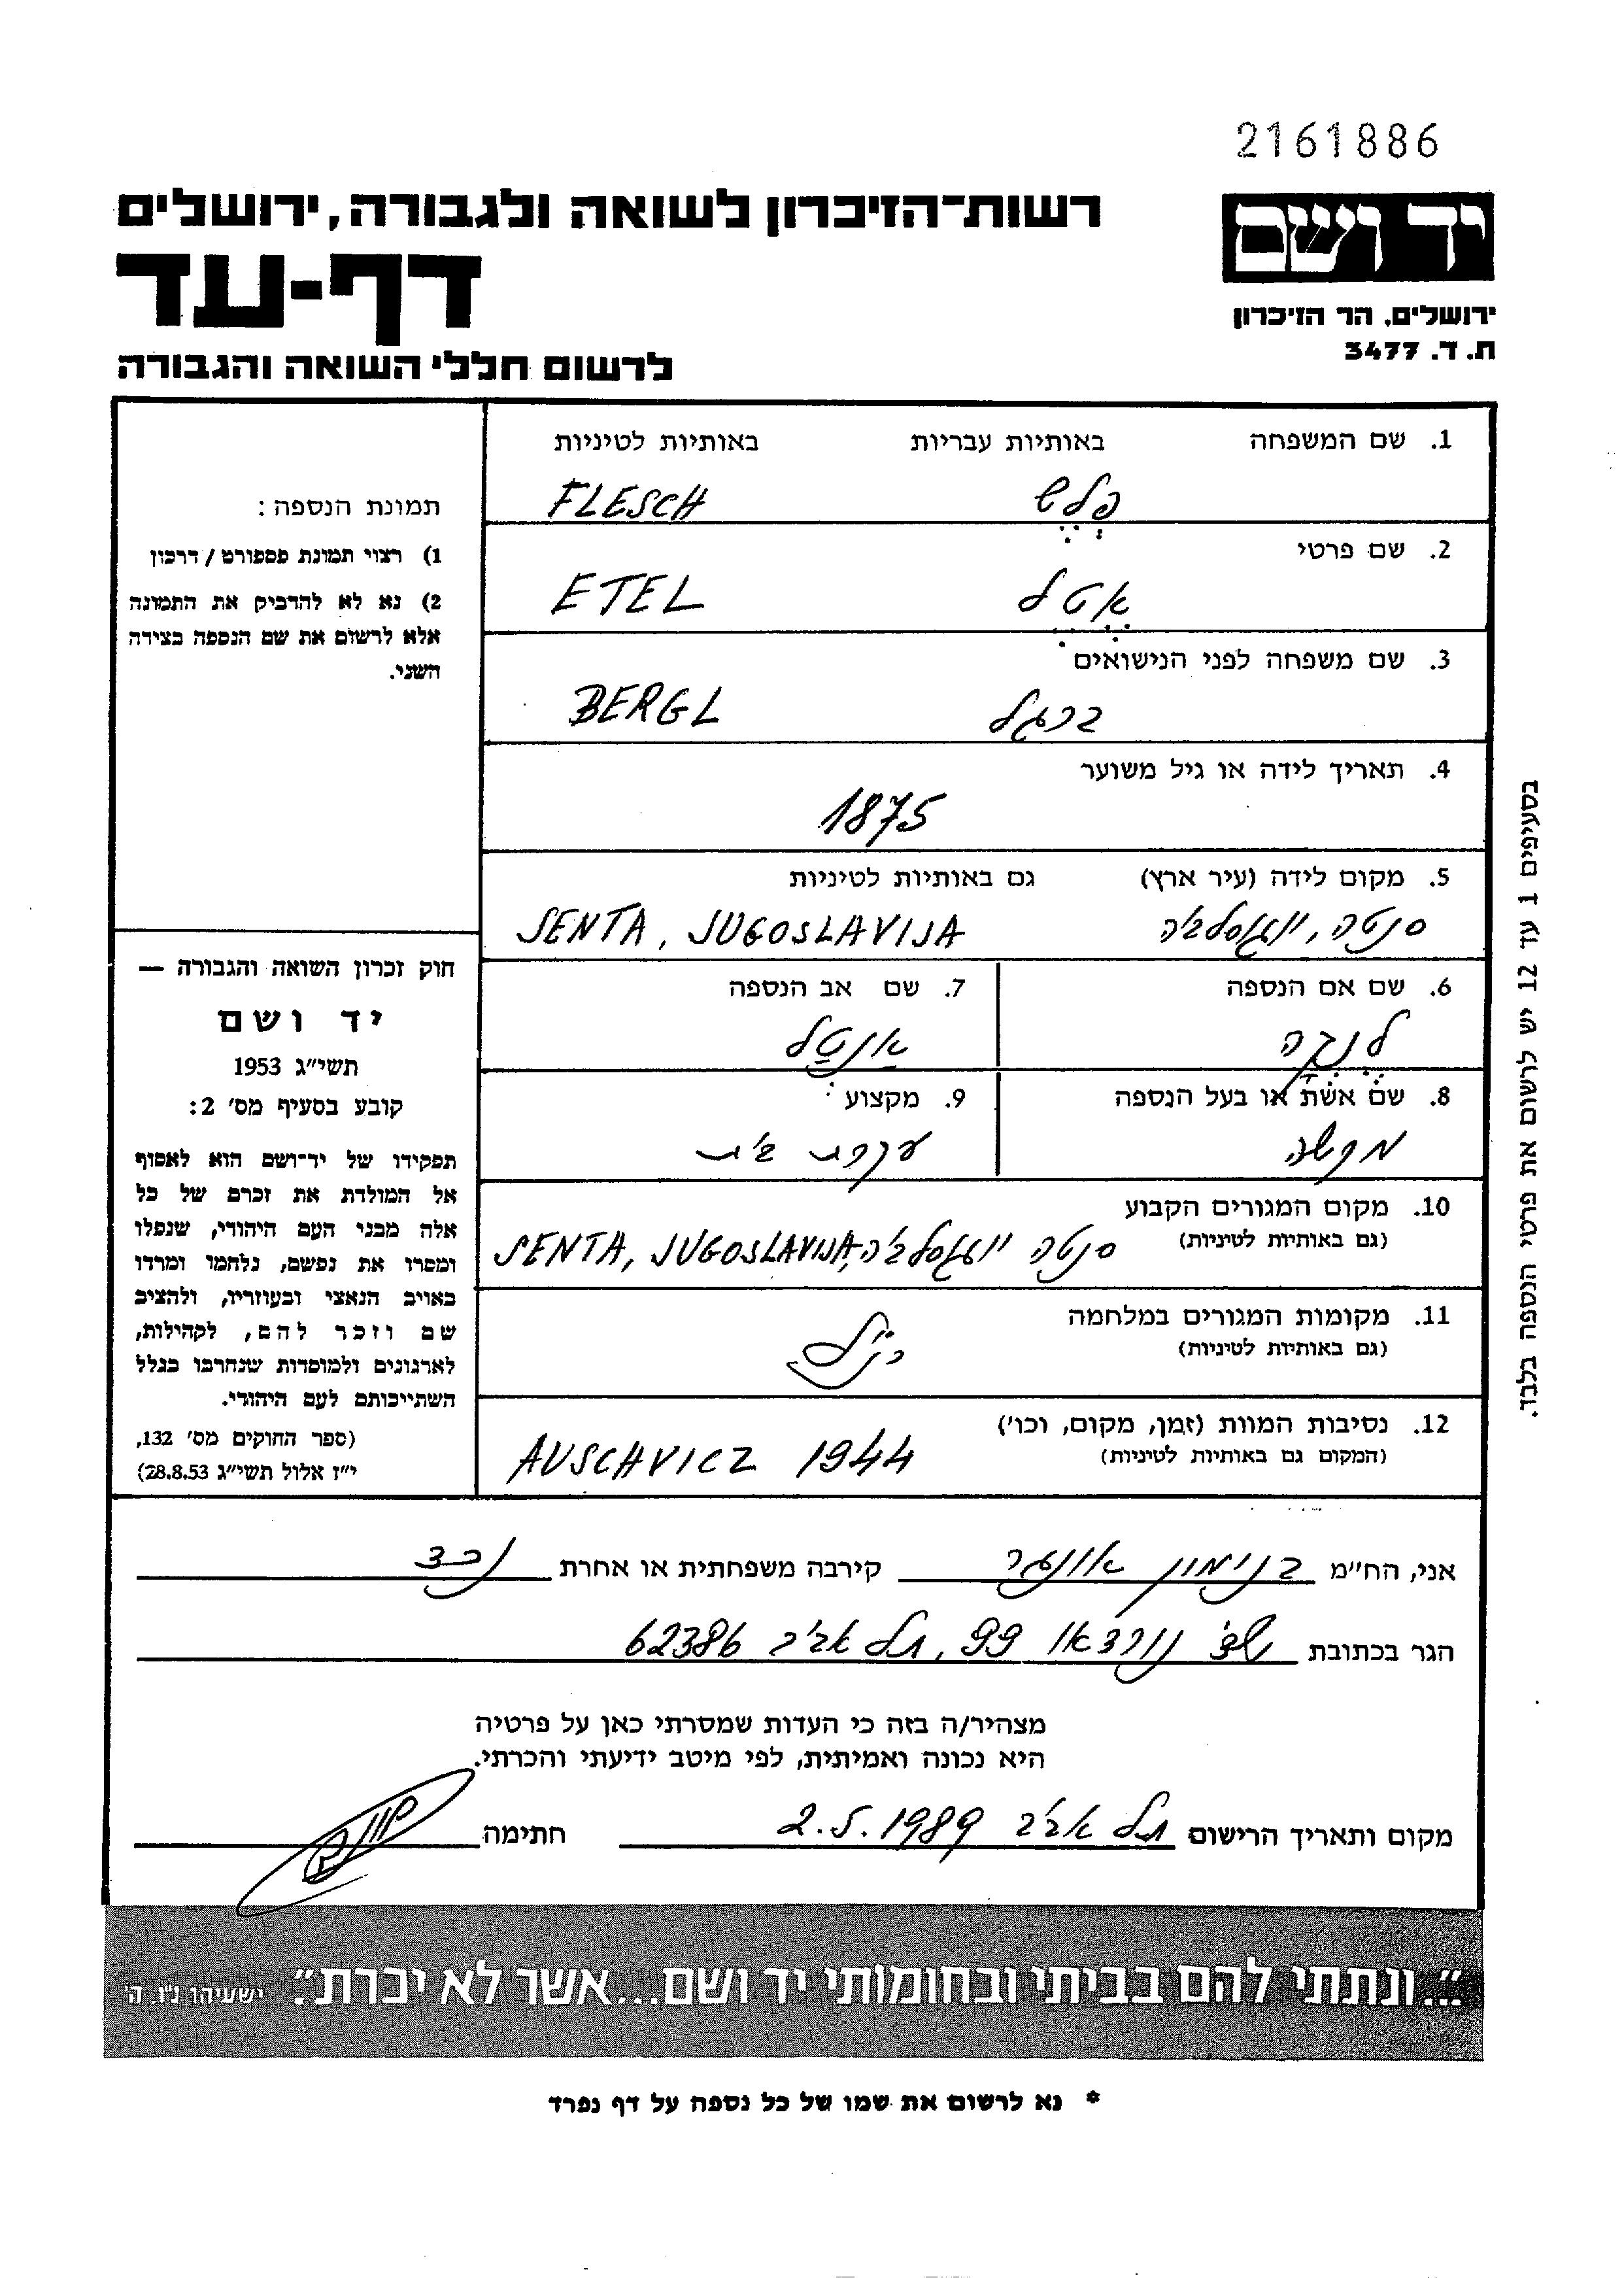 2161886
יד ושם
רשות־הזיכרון לשואה ולגבורה, ירושלים
דף-עד
ירושלים, הר הזיכרון
ת. ד. 3477
לרשום חללי השואה והגבורה
1. שם המשפחה באותיות עבריות באותיות לטיניות
פלש FLESCH
2. שם פרטי
אטל ETEL
3. שם משפחה לפני הנישואים
ברגל BERGL
4. תאריך לידה או גיל משוער
1875
5. מקום לידה (עיר ארץ) גם באותיות לטיניות
סנטה, יוגוסלביה SENTA, JUGOSLAVIJA
6. שם אם הנספה 7. שם אב הנספה
לנקה אנטל
8. שם אשת או בעל הנספה 9. מקצוע
משה עקרת בית
10. מקום המגורים הקבוע
(גם באותיות לטיניות) סנטה יוגוסלביה, SENTA, JUGOSLAVIJA
11. מקומות המגורים במלחמה
(גם באותיות לטיניות) כנ"ל
12. נסיבות המוות (זמן, מקום, וכו')
(המקום גם באותיות לטיניות) AUSCHVICZ 1944
תמונת הנספה:
1) רצוי תמונת פספורט/דרכון
2) נא לא להדביק את התמונה
אלא לרשום את שם הנספה בצידה
השני.
חוק זכרון השואה והגבורה —
יד ושם
תשי"ג 1953
קובע בסעיף מס' 2:
תפקידו של יד-ושם הוא לאסוף
אל המולדת את זכרם של כל
אלה מבני העם היהודי, שנפלו
ומסרו את נפשם, נלחמו ומרדו
באויב הנאצי ובעוזריו, ולהציב
שם וזכר להם, לקהילות,
לארגונים ולמוסדות שנחרבו בגלל
השתייכותם לעם היהודי.
(ספר החוקים מס' 132,
י"ז אלול תשי"ג 28.8.53)
בסעיפים 1 עד 12 יש לרשום את פרטי הנספה בלבד.
אני, הח"מ בנימין אונגר קירבה משפחתית או אחרת נכד
הגר בכתובת שד' נורדאו 99, תל אביב 62386
מצהיר/ה בזה כי העדות שמסרתי כאן על פרטיה
היא נכונה ואמיתית, לפי מיטב ידיעתי והכרתי.
מקום ותאריך הרישום תל אביב 2.5.1989 חתימה
"...ונתתי להם בביתי ובחומותי יד ושם...אשר לא יכרת". ישעיהו נ"ו, ה'
* נא לרשום את שמו של כל נספה על דף נפרד